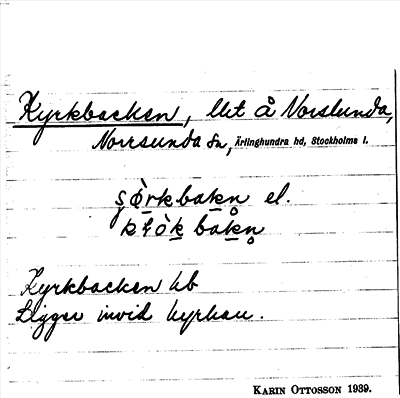 Kyrkbacken, llt å Norslunda,
Norrsunda sn, Ärlinghundra hd, Stockholms l.
el.
Kyrkbacken hb
Ligger invid kyrkan.
KARIN OTTOSSON 1939.